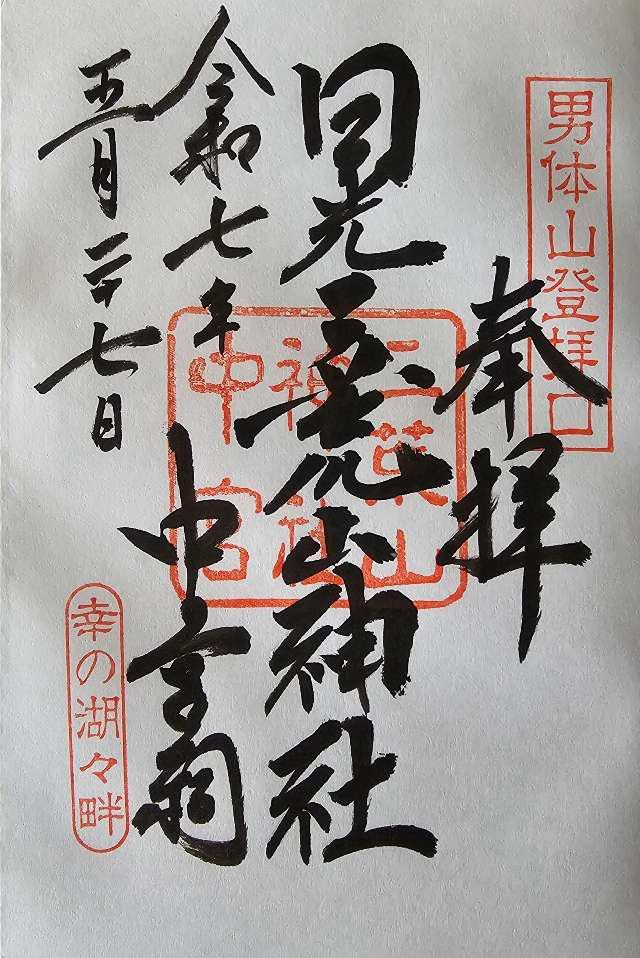 男体山登拝口
奉拝
日光二荒山神社
中宮祠
二荒山
神社
中宮
令和七年
五月二十七日
幸の湖々畔